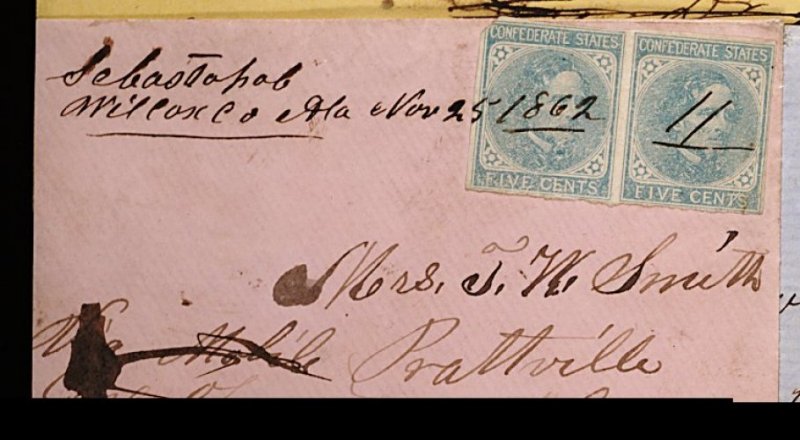 CONFEDERATE STATES CONFEDERATE STATES
Sebastopol
Wilcox Co Ala Nov 25 1862 11
FIVE CENTS FIVE CENTS
Mrs. T. W. Smith
Via Mobile Prattville